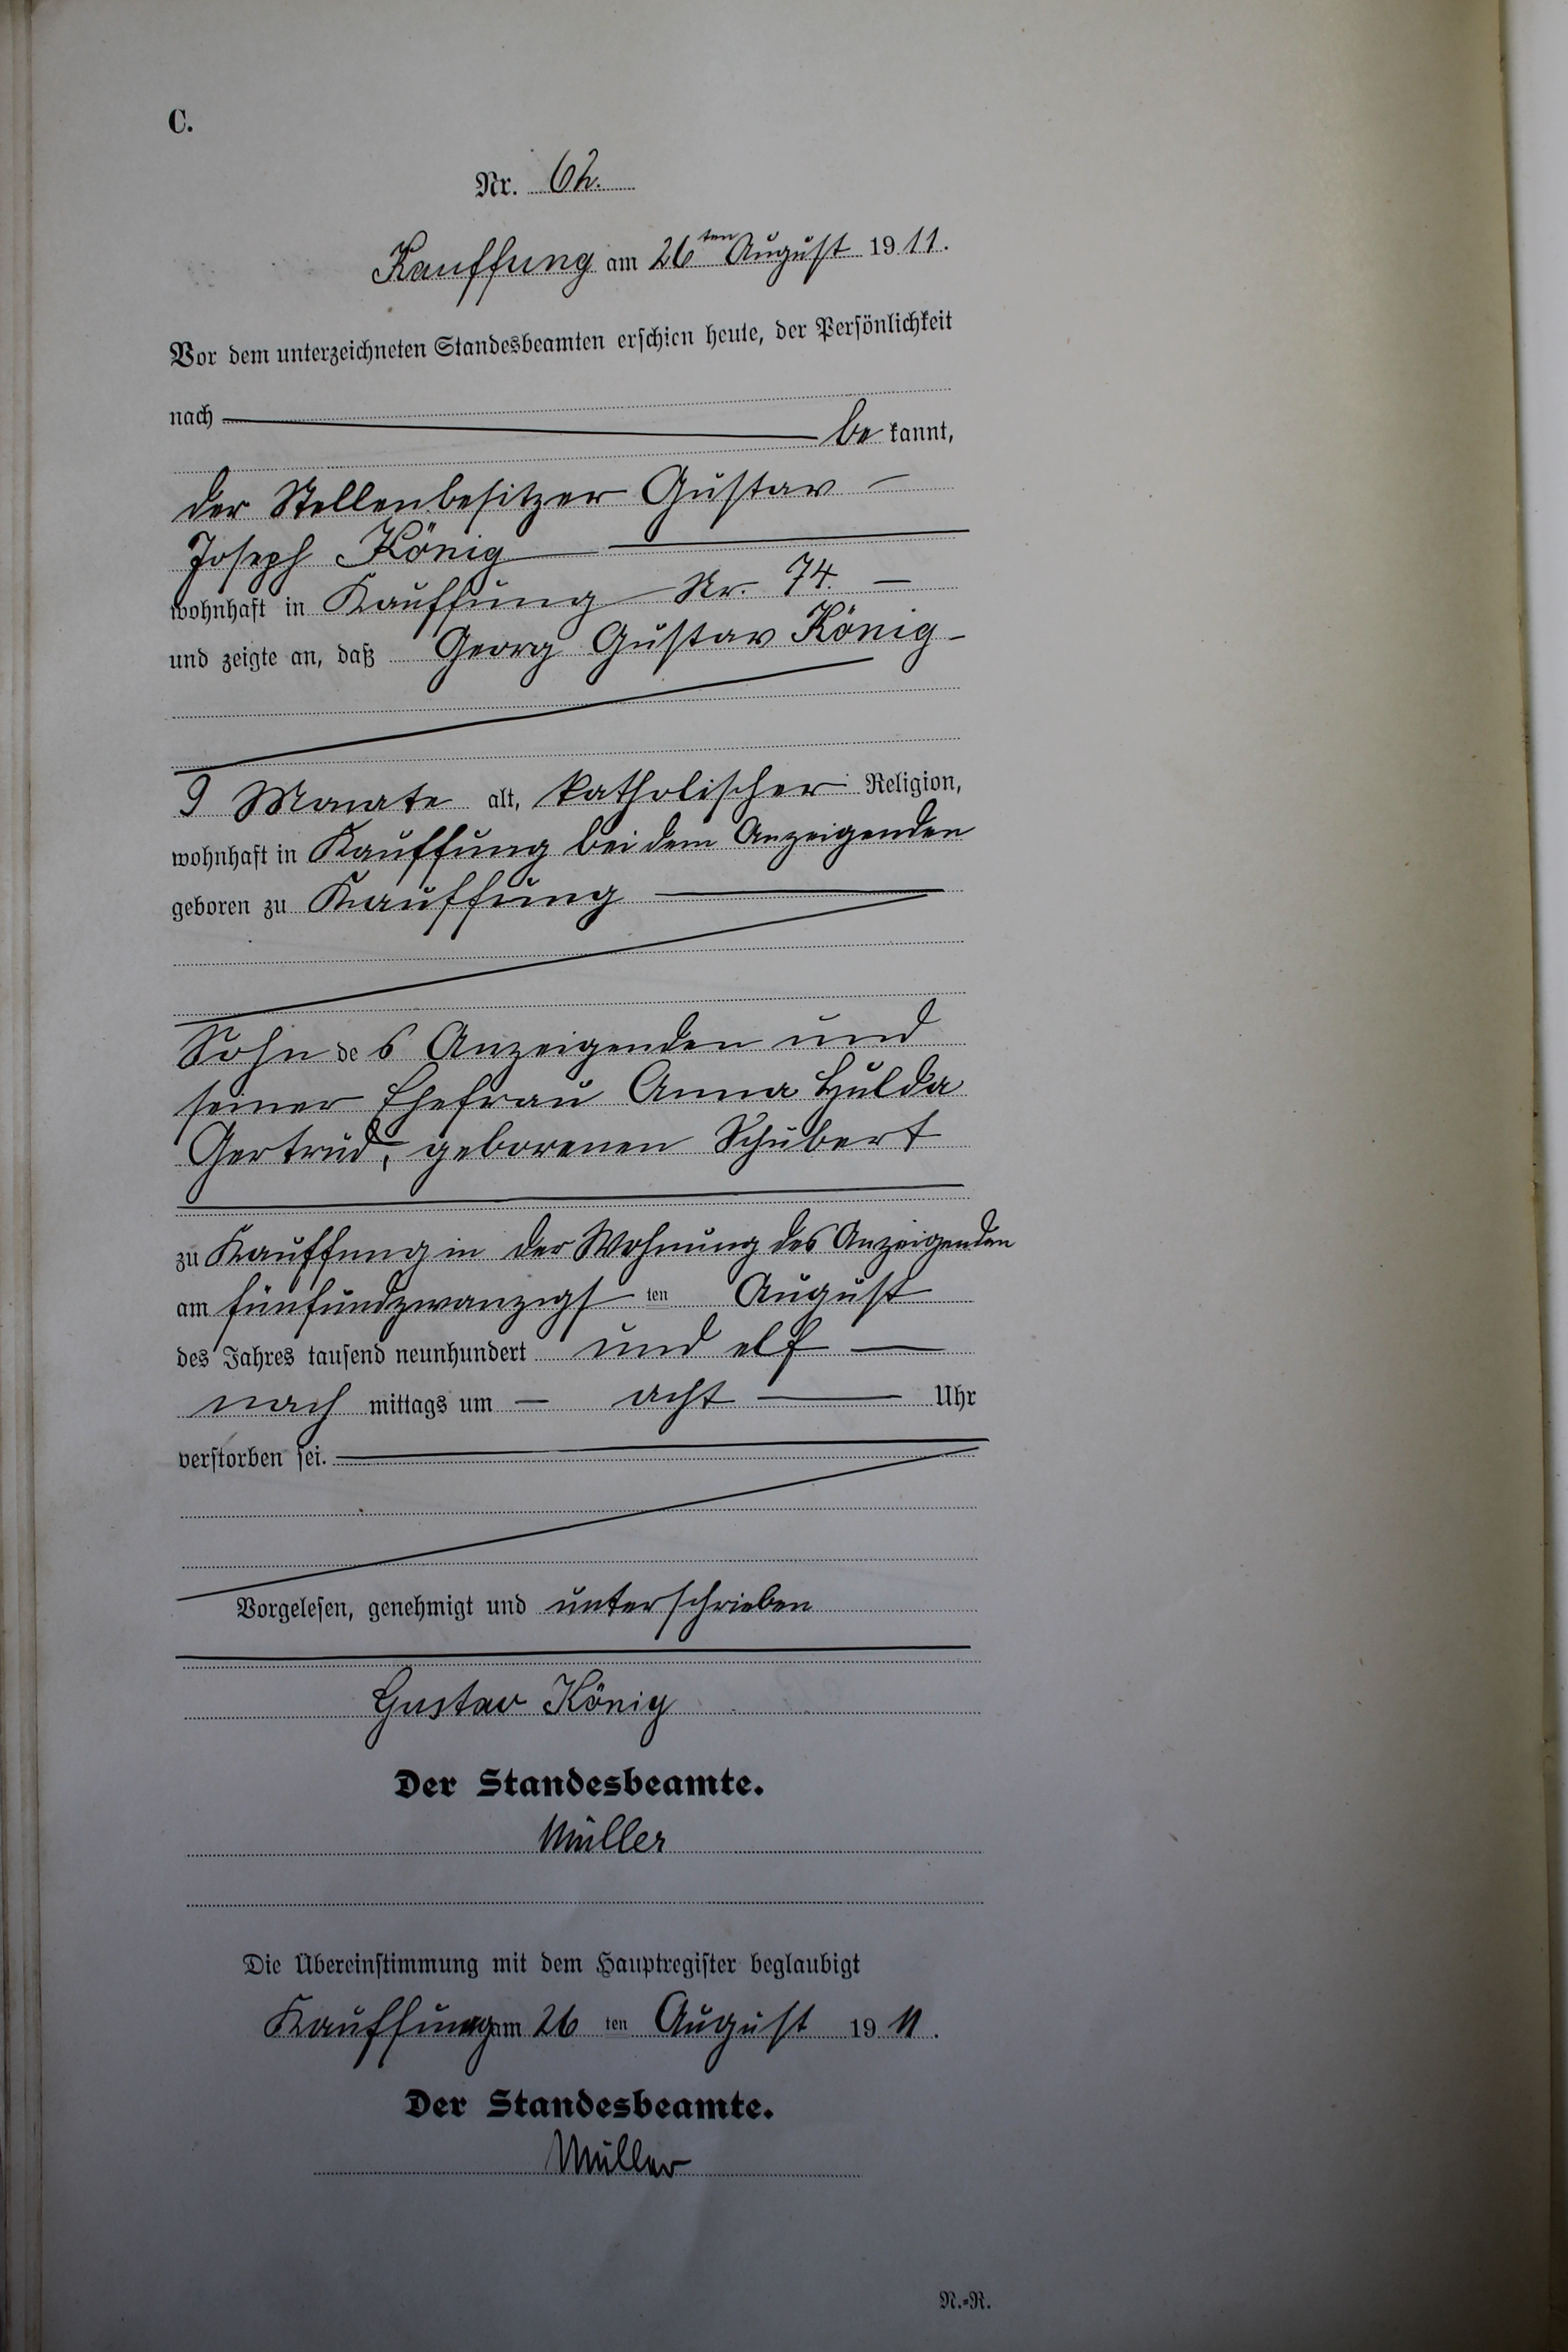 C.
Nr. 62.
Kauffung am 26ten August 1911.
Vor dem unterzeichneten Standesbeamten erschien heute, der Persönlichkeit
nach
be kannt,
der Stellenbesitzer Gustav
Joseph König
wohnhaft in Kauffung Nr. 74.
und zeigte an, daß Georg Gustav König
9 Monate alt, katholischer Religion,
wohnhaft in Kauffung bei dem Anzeigenden
geboren zu Kauffung
Sohn des Anzeigenden und
seiner Ehefrau Anna Hulda
Gertrud, geborenen Schubert
zu Kauffung in der Wohnung des Anzeigenden
am fünfundzwanzigsten August
des Jahres tausend neunhundert und elf
nach mittags um acht Uhr
verstorben sei.
Vorgelesen, genehmigt und unterschrieben
Gustav König
Der Standesbeamte.
Müller
Die Übereinstimmung mit dem Hauptregister beglaubigt
Kauffung am 26 ten August 19 11.
Der Standesbeamte.
Müller
N.=R.